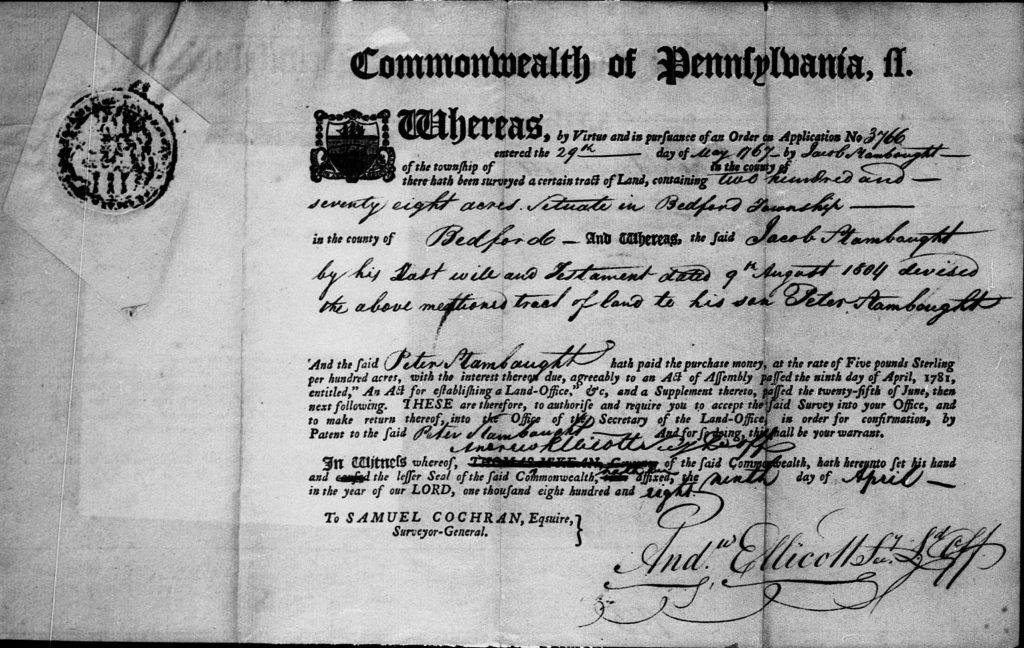 Commonwealth of Pennſylvania, ſſ.
Whereas, by Virtue and in purſuance of an Order on Application No 3766
entered the 29th day of May 1767 by Jacob Stambaught
of the townſhip of in the county of
there hath been ſurveyed a certain tract of Land, containing two hundred and
seventy eight acres. Situate in Bedford Township
in the county of Bedford And Whereas, the ſaid Jacob Stambaught
by his Last will and Testament dated 9th August 1804 devised
the above mentioned tract of land to his son Peter Stambaught
And the ſaid Peter Stambaught hath paid the purchaſe money, at the rate of Five pounds Sterling
per hundred acres, with the intereſt thereon due, agreeably to an Act of Aſſembly paſſed the ninth day of April, 1781,
entitled, "An Act for eſtabliſhing a Land-Office," &c, and a Supplement thereto, paſſed the twenty-fifth of June, then
next following. THESE are therefore, to authoriſe and require you to accept the ſaid Survey into your Office, and
to make return thereof, into the Office of the Secretary of the Land-Office, in order for confirmation, by
Patent to the ſaid Peter Stambaught And for ſo doing, this ſhall be your warrant.
Andrew Ellicott
In Witneſs whereof, THOMAS M'KEAN, of the ſaid Commonwealth, hath hereunto ſet his hand
and cauſed the leſſer Seal of the ſaid Commonwealth, affixed, the ninth day of April
in the year of our LORD, one thouſand eight hundred and eight
To SAMUEL COCHRAN, Eqsuire,
Surveyor-General.
Andw Ellicott Sec. Ld Off.